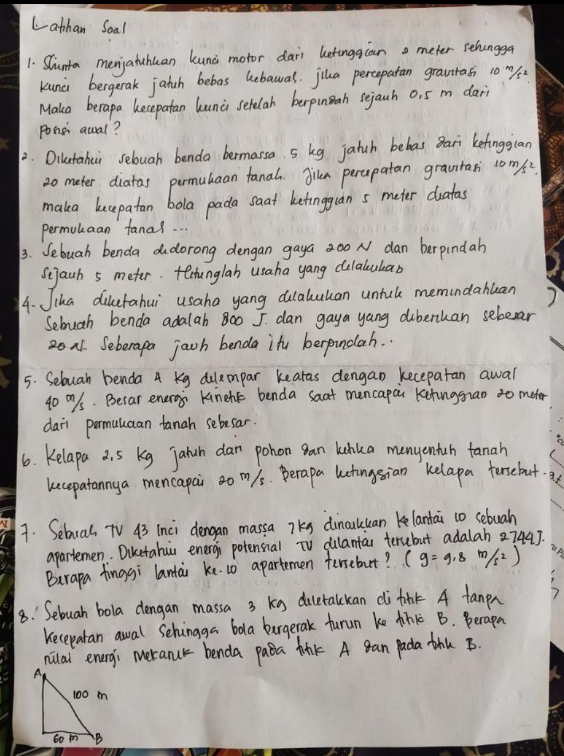 Latihan Soal
1. Shinta menjatuhkan kunci motor dari ketinggian 2 meter sehingga
kunci bergerak jatuh bebas kebawah. jika percepatan gravitasi 10 m/s².
Maka berapa kecepatan kunci setelah berpindah sejauh 0,5 m dari
posisi awal?
2. Diketahui sebuah benda bermassa 5 kg jatuh bebas dari ketinggian
20 meter diatas permukaan tanah. Jika percepatan gravitasi 10 m/s².
maka kecepatan bola pada saat ketinggian 5 meter diatas
permukaan tanah ...
3. Sebuah benda didorong dengan gaya 200 N dan berpindah
sejauh 5 meter. Hitunglah usaha yang dilakukan
4. Jika diketahui usaha yang dilakukan untuk memindahkan
sebuah benda adalah 800 J. dan gaya yang diberikan sebesar
20 N. Seberapa jauh benda itu berpindah..
5. Sebuah benda 4 kg dilempar keatas dengan kecepatan awal
40 m/s. Besar energi kinetik benda saat mencapai ketinggian 20 meter
dari permukaan tanah sebesar.
6. Kelapa 2,5 kg jatuh dari pohon dan ketika menyentuh tanah
kecepatannya mencapai 20 m/s. Berapa ketinggian kelapa tersebut.
7. Sebuah TV 43 Inci dengan massa 7 kg dinaikkan ke lantai 10 sebuah
apartemen. Diketahui energi potensial TV dilantai tersebut adalah 2744 J.
Berapa tinggi lantai ke-10 apartemen tersebut? (g = 9,8 m/s²)
8. Sebuah bola dengan massa 3 kg diletakkan di titik A tanpa
kecepatan awal sehingga bola bergerak turun ke titik B. Berapa
nilai energi mekanik benda pada titik A dan pada titik B.
A
100 m
60 m B